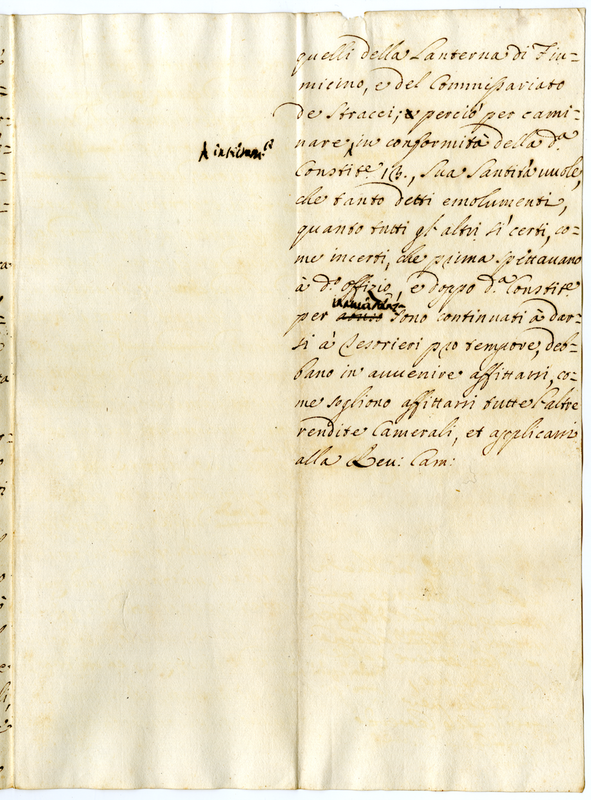 quelli della Lanterna di Fiu=
micino, e del Commissariato
de Stracci; e perciò per cami=
nare in conformità della d.ª
Constit.e 13., Sua Santità vuole,
che tanto detti emolumenti,
quanto tutti gl'altri sì certi, co=
me incerti, che prima spettavano
à d.º offizio, e doppo d.ª Constit.e
per sono continuati à dar=
si à Tesorieri pro tempore, deb=
bano in avvenire affittarsi, co=
me sogliono affittarsi tutte l'altre
rendite Camerali, et applicarsi
alla Rev: Cam: